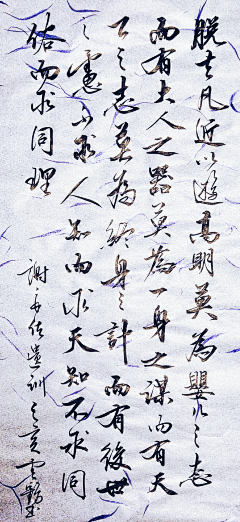 脱去凡近以遊高明莫為嬰兒之志
而有大人之器莫為一身之謀而有天
下之志莫為終身之計而有後世
之慮不求人知而求天知不求同
俗而求同理
謝良佐遺訓